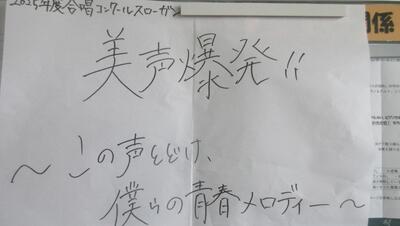 2025年度合唱コンクールスローガン
美声爆発!!
〜この声とどけ、
僕らの青春メロディー〜
関係